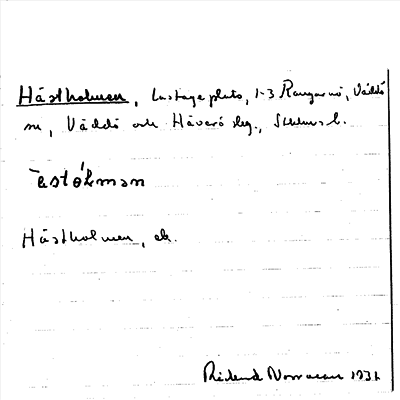 Hästholmen, Lastageplats, 1-3 Rangarnö, Väddö
sn, Väddö och Häverö skg., Sthlms l.
ˉestólman
Hästholmen, ek.
Rickard Norrman 1931